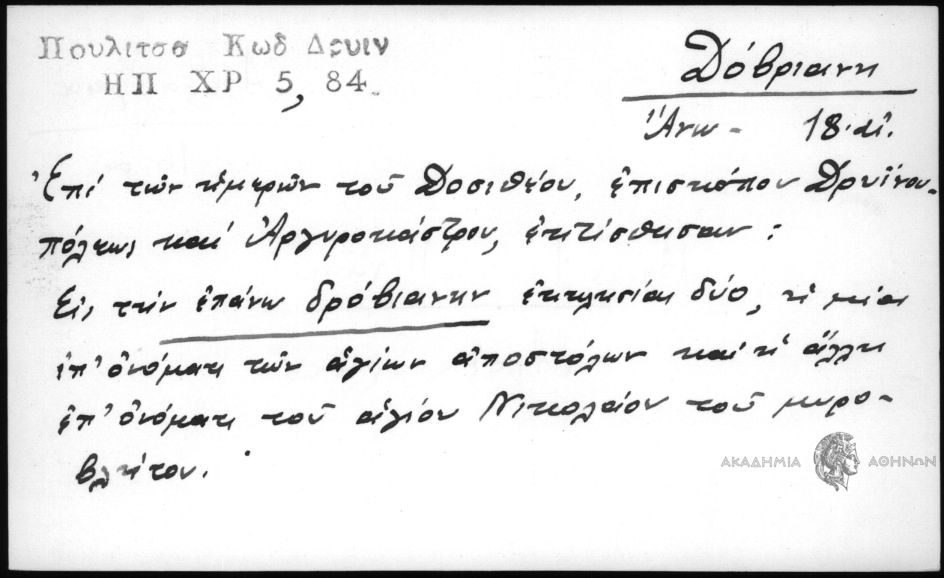 Πουλιτσα Κωδ Δρυιν
ΗΠ ΧΡ 5, 84.
Δόβριανη
Ἄνω - 18.αἰ.
Ἐπί τῶν ἡμερῶν τοῦ Δοσιθέου, ἐπισκόπου Δρυϊνου-
πόλεως καί Ἀργυροκάστρου, ἐκτίσθησαν :
Εἰς τήν ἐπάνω δρόβιανην ἐκκλησίαι δύο, ἡ μία
ἐπ' ὀνόματι τῶν ἁγίων ἀποστόλων καί ἡ ἄλλη
ἐπ' ὀνόματι τοῦ ἁγίου Νικολαίου τοῦ μυρο-
βλήτου.
ΑΚΑΔΗΜΙΑ ΑΘΗΝΩΝ